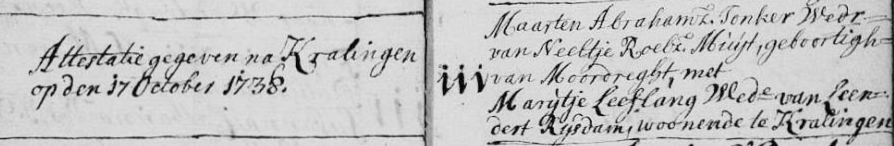 Attestatie gegeven na Kralingen
op den 17 October 1738.
Maarten Abrahamz. Jonker Wedr.
van Neeltje Roelz. Muijt, geboortigh
iii van Moordreght, met
Marijtje Leeflang Wede van Leen-
dert Rijsdam, woonende te Kralingen